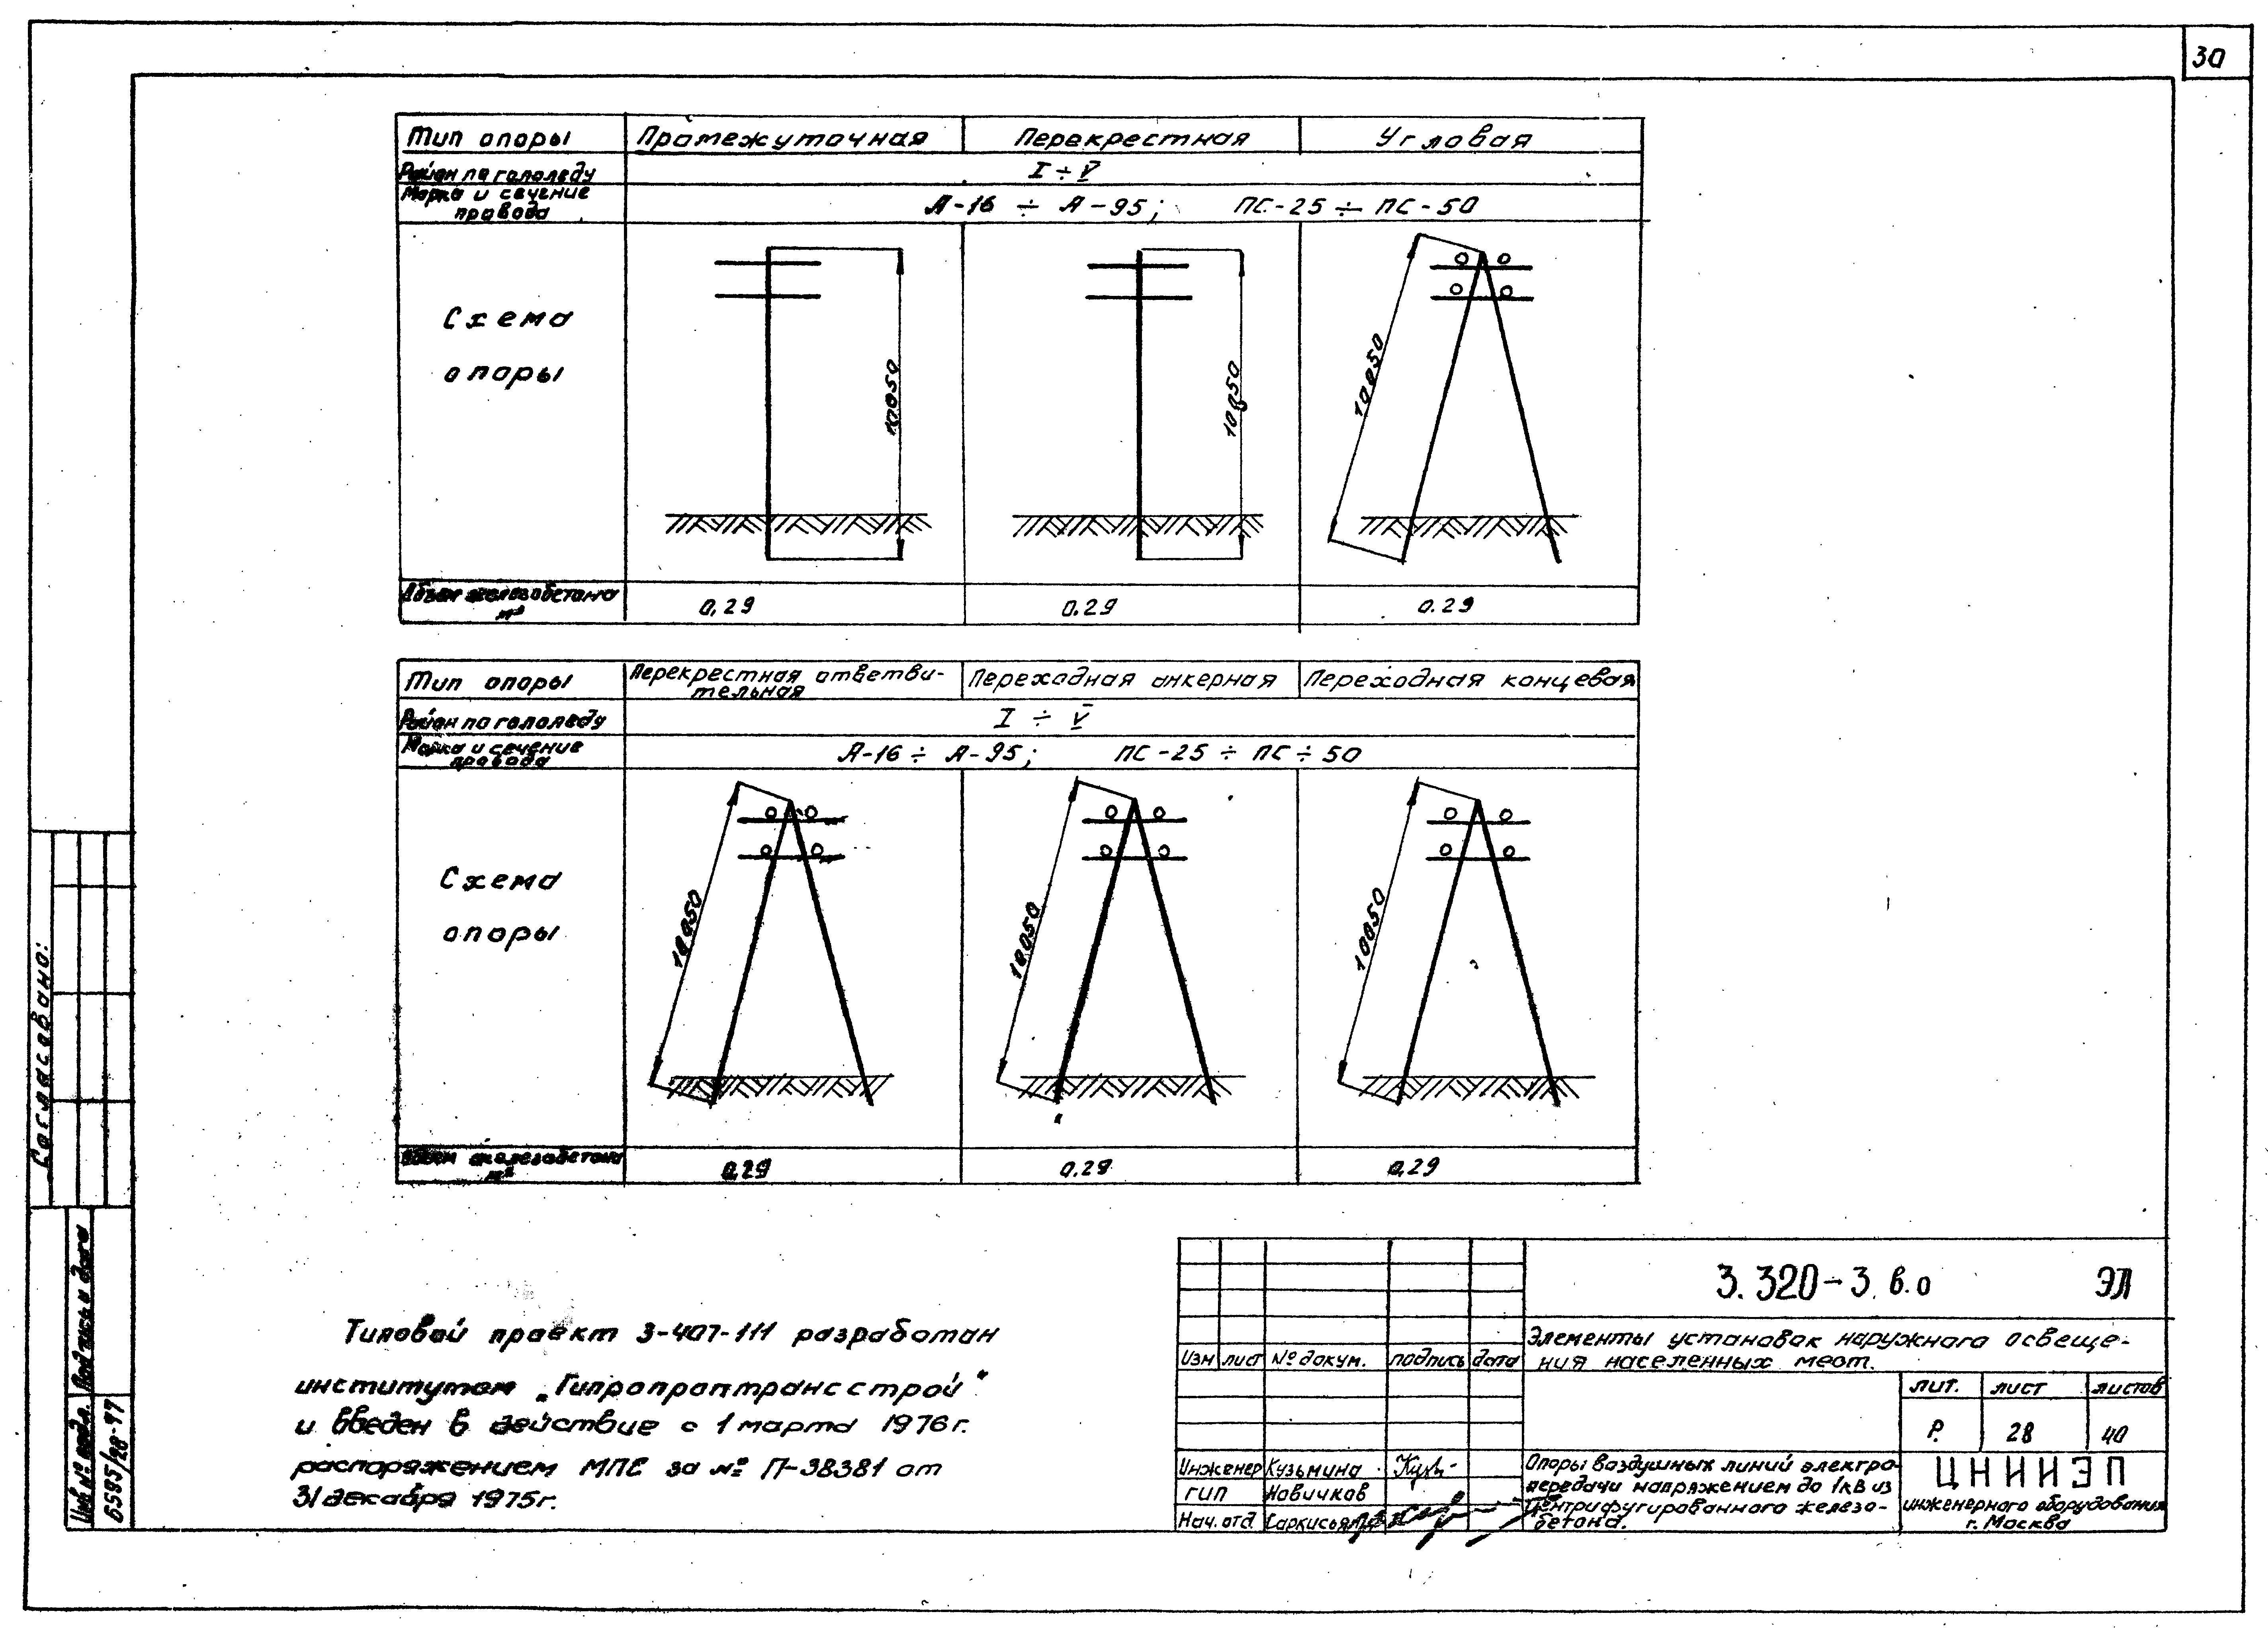 30
Тип опоры Промежуточная Перекрестная Угловая
Район по гололеду I ÷ V
Марка и сечение провода А-16 ÷ А-95; ПС-25 ÷ ПС-50
Схема
опоры
10050 10050 10050
Объем железобетона м³ 0,29 0.29 0.29
Тип опоры Перекрестная ответви-
тельная Переходная анкерная Переходная концевая
Район по гололеду I ÷ V
Марка и сечение провода А-16 ÷ А-95; ПС-25 ÷ ПС÷50
Схема
опоры
10050 10050 10050
Объем железобетона м³ 0,29 0.29 0,29
Типовой проект 3-407-111 разработан
институтом „Гипропромтрансстрой"
и введен в действие с 1 марта 1976г.
распоряжением МПС за № П-38381 от
31 декабря 1975г.
Согласовано:
Подпись и дата
Инв № подл.
6595/28-97
3.320-3. в.0 ЭЛ
Элементы установок наружного освеще-
ния населенных мест.
Изм лист № докум. подпись дата
лит. лист листов
Р. 28 40
Инженер Кузьмина
ГИП Новичков
Нач. отд. Саркисьян
Опоры воздушных линий электро-
передачи напряжением до 1кВ из
центрифугированного железо-
бетона.
ЦНИИЭП
инженерного оборудования
г. Москва